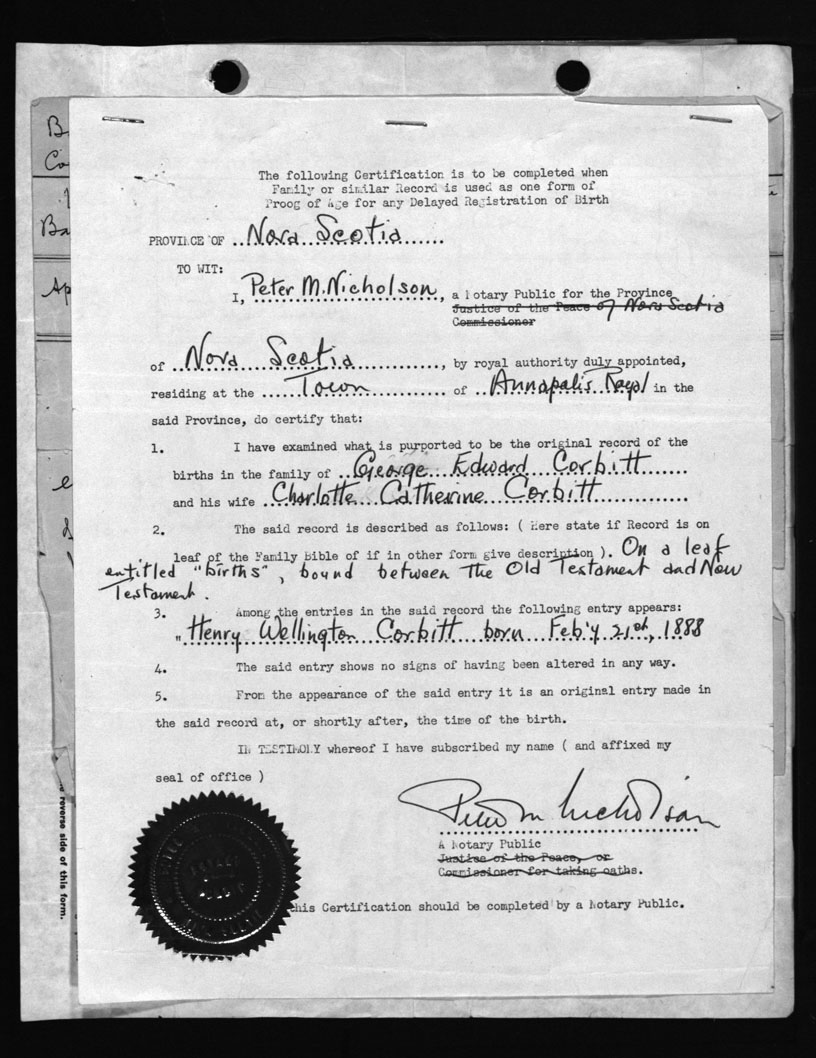 The following Certification is to be completed when
Family or similar Record is used as one form of
Proog of Age for any Delayed Registration of Birth
PROVINCE OF ..Nova Scotia......
TO WIT:
I, Peter M. Nicholson, a Notary Public for the Province
Justice of the Peace of Nova Scotia
Commissioner
of ..Nova Scotia.............., by royal authority duly appointed,
residing at the ....Town.......... of ..Annapolis Royal in the
said Province, do certify that:
1. I have examined what is purported to be the original record of the
births in the family of ..George Edward Corbitt......
and his wife .Charlotte Catherine Corbitt..............
2. The said record is described as follows: ( Here state if Record is on
leaf of the Family Bible of if in other form give description ). On a leaf
entitled "births", bound between the Old Testament and New
Testament.
3. Among the entries in the said record the following entry appears:
"Henry Wellington Corbitt born Feb'y 21st, 1888
4. The said entry shows no signs of having been altered in any way.
5. From the appearance of the said entry it is an original entry made in
the said record at, or shortly after, the time of the birth.
IN TESTIMONY whereof I have subscribed my name ( and affixed my
seal of office )
Peter M Nicholson
A Notary Public
Justise of the Peace, or
Commissioner for taking oaths.
his Certification should be completed by a Notary Public.
B
Co
Ba
Ap
reverse side of this form.